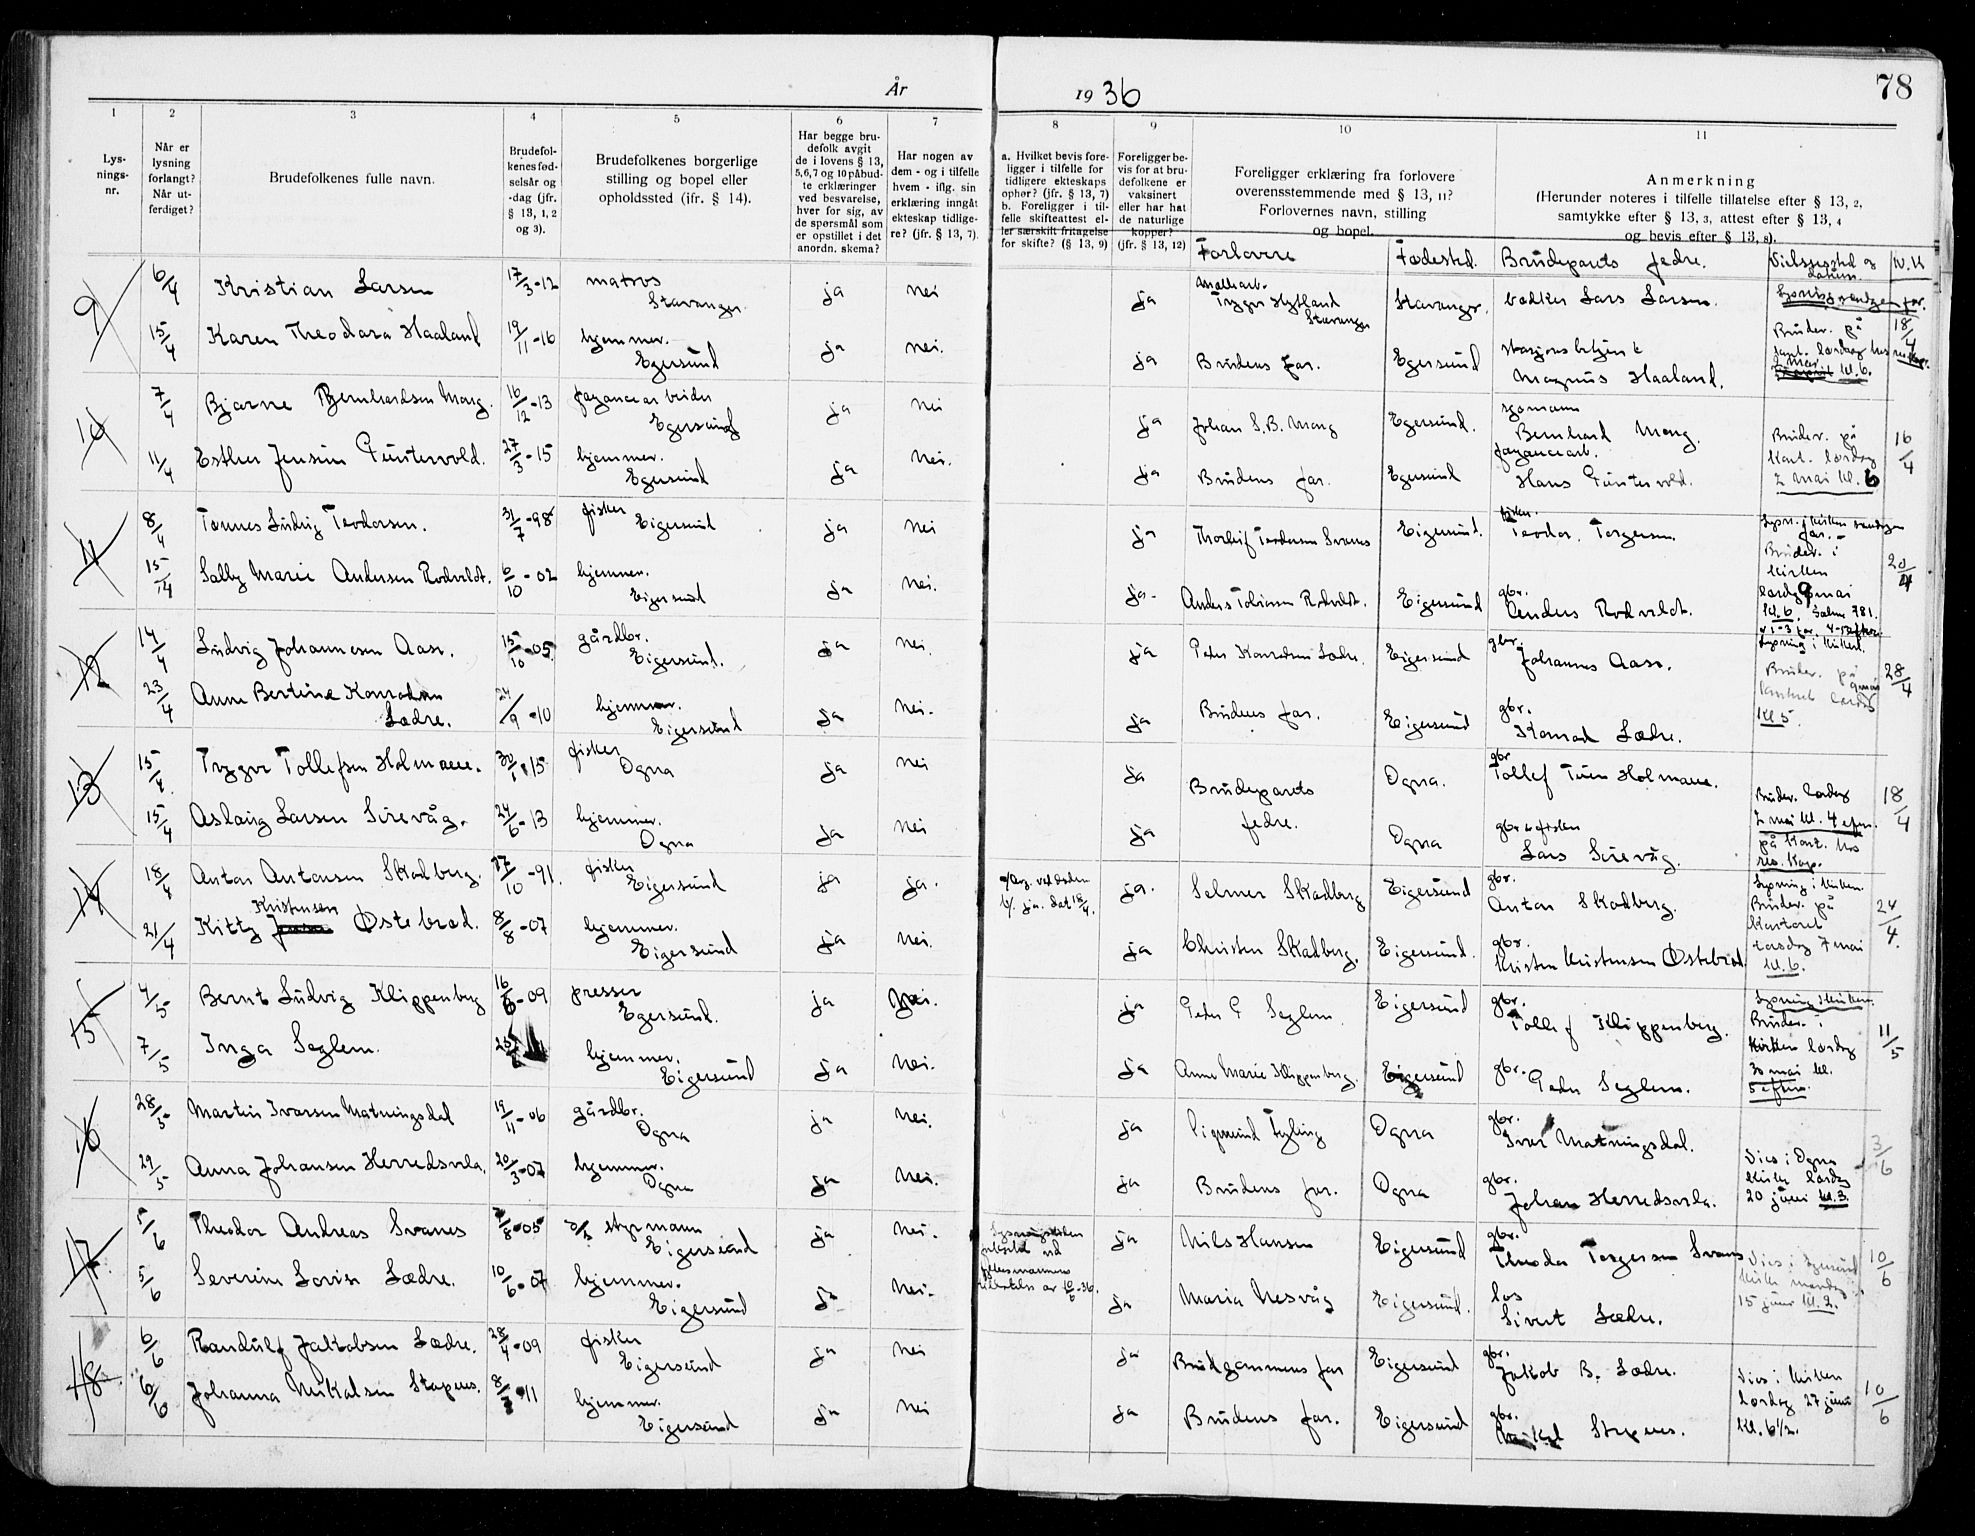 År 1936
78
1 2 3 4 5 6 7 8 9 10 11
Lys-
nings-
nr.
Når er
lysning
forlangt?
Når ut-
ferdiget?
Brudefolkenes fulle navn.
Brudefol-
kenes fød-
selsår og
-dag (jfr.
§ 13, 1, 2
og 3).
Brudefolkenes borgerlige
stilling og bopel eller
opholdssted (jfr. § 14).
Har begge bru-
defolk avgit
de i lovens § 13,
5,6,7 og 10 påbud-
te erklæringer
ved besvarelse,
hver for sig, av
de spørsmål som
er opstillet i det
anordn. skema?
Har nogen av
dem - og i tilfelle
hvem - iflg. sin
erklæring inngåt
ekteskap tidlige-
re? (jfr. § 13, 7).
a. Hvilket bevis fore-
ligger i tilfelle for
tidligere ekteskaps
ophør? (jfr. § 13, 7)
b. Foreligger i til-
felle skifteattest el-
ler særskilt fritagelse
for skifte? (§ 13, 9)
Foreligger be-
vis for at bru-
defolkene er
vaksinert
eller har hat
de naturlige
kopper?
(jfr. § 13, 12)
Foreligger erklæring fra forlovere
overensstemmende med § 13, 11?
Forlovernes navn, stilling
og bopel.
Anmerkning
(Herunder noteres i tilfelle tillatelse efter § 13, 2,
samtykke efter § 13, 3, attest efter § 13, 4
og bevis efter § 13, 8).
Forlovere Fødested. Brudeparets fedre. Vielsessted og datum.
9 6/4 Kristian Larsen 17/3-12 matros Stavanger ja nei ja Trygve Hytland Stavanger Stavanger. bødker Lars Larsen.
15/4 Karen Theodora Haaland 19/11-16 hjemmev. Egersund ja nei. ja Brudens far. Egersund Magnus Haaland. Brudev. på kl. 6. 18/4
10 7/4 Bjarne Bernhardsen Mong. 16/12-13 fayancearbeider Egersund ja nei ja Johan S. B. Mong Egersund. sjømann Bernhard Mong. Brudev. på 16/4
11/4 Esther Jensine Puntervold. 27/3-15 hjemmev. Egersund ja nei. ja Brudens far. Egersund fayancearb. Hans Puntervold. Kont. lørdag 2 mai kl. 6
11 8/4 Tønnes Ludvig Teodorsen. 31/7-98 fisker Eigersund ja nei ja Thorleif Teodorsen Svanes Eigersund. fisker. Teodor Torgersen. Brudev. i kirken 20/4
15/4 Solby Marie Andersen Rodvelt. 6/10-02 hjemmev. Eigersund ja nei. ja. Anders Tobiassen Rodvelt. Eigersund gbr. Anders Rodvelt. lørdag 9 mai kl. 6. Salme 781. v 1-3 før. 4-
12 14/4 Ludvig Johannesen Aase. 15/10-05. gårdbr. Eigersund. ja nei. ja Peder Konradsen Lædre. Eigersund gbr. Johannes Aase. Lysning i kirken. Brudev. på 28/4
23/4 Anne Bertine Konradsen Lædre. 24/9-10 hjemmev. Eigersund ja nei. ja Brudens far. Eigersund gbr. Konrad Lædre. kl 5.
13 15/4. Trygve Tollefsen Holmane. 30/1-15. fisker Ogna ja nei ja Brudeparets Ogna. gbr Tollef Holmane. Brudev. lørdag 18/4
15/4 Aslaug Larsen Sirevåg. 24/6-13 hjemmev. Ogna ja nei ja fedre. Ogna gbr. fisker Lars Sirevåg. 2 mai kl. 4 efm. på Kont. hos res. Kap.
14 18/4 Anton Antonsen Skadberg. 17/10-91. fisker Eigersund ja ja. ja. Selmer Skadberg Eigersund gbr. Anton Skadberg. Lysning i kirken. Brudev. på 24/4.
21/4 Kitty Kristensen Østebrød. 8/8-07 hjemmev. Eigersund ja nei. ja Christen Skadberg. Eigersund. gbr. Kristen Kristensen Østebrød Kontoret torsdag 7 mai kl. 6.
15 4/5 Bernt Ludvig Klippenberg 16/6-09 presser Egersund. ja nei. ja Peder P Seglem Eigersund gbr. Tollef Klippenberg. Lysning i kirken. Brudev. i 11/5
7/5 Inga Seglem. hjemmev. Eigersund ja nei. ja Anne Marie Klippenberg. Eigersund gbr. Peder Seglem. kirken lørdag 30 mai kl. 5 efm.
16 28/5 Martin Ivarsen Matningsdal 19/11-06 gårdbr. Ogna ja nei. ja Sigmund Tyling Ogna gbr. Ivar Matningsdal. 3/6
29/5 Anna Johansen Herredsvela. 20/3-07 hjemmev. Ogna ja nei. ja Brudens far. Ogna gbr. Johan Herredsvela. Vies i Ogna kirke lørdag 20 juni kl. 3.
17. 5/6 Theodor Andreas Svanes styrmann Eigersund ja nei. ja Nils Hansen Eigersund gbr. Theodor Torgersen Svanes 10/6
5/6 Severine Lovise Lædre. 10/6-07 hjemmev. Eigersund ja nei. ja Maria Nesvåg Eigersund. los Sivert Lædre. kirke mandag 15 juni kl. 2.
18. 6/6 Randulf Jakobsen Lædre. 28/4-09 fisker Eigersund ja nei ja Brudgommens far Eigersund gbr. Jakob B. Lædre. Vies i kirken 10/6
6/6 Johanna Mikalsen Stapnes. hjemmev. Eigersund ja nei ja Brudens far. Eigersund gbr. Stapnes. lørdag 27 juni kl. 6 1/2.